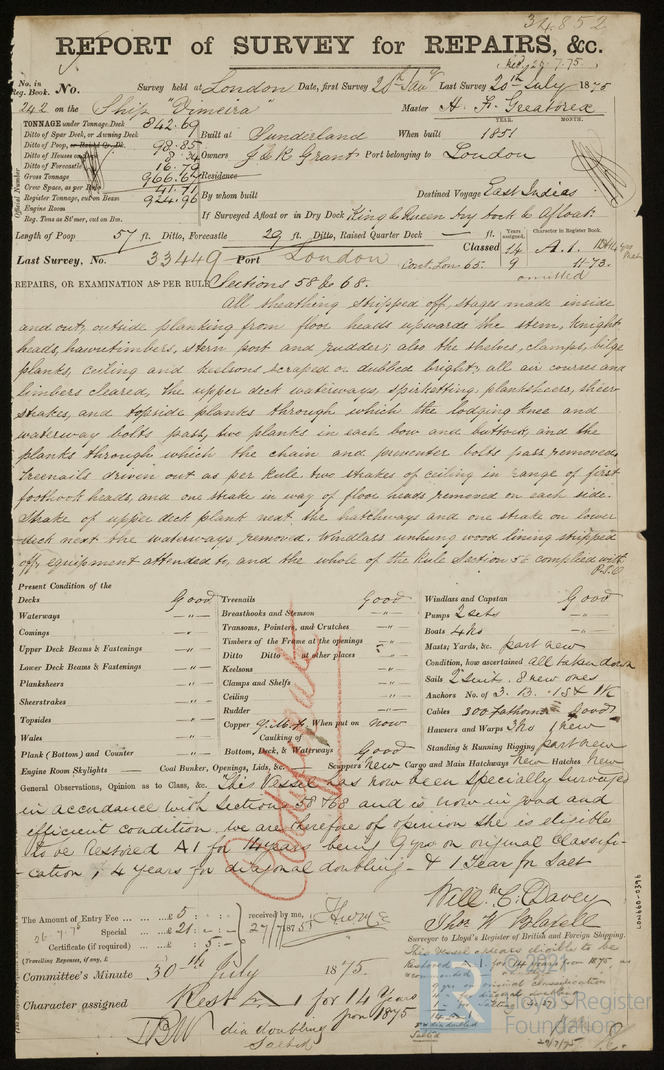 34852
REPORT of SURVEY for REPAIRS, &c.
Rec. 26.7.75
No. in Reg. Book. No. Survey held at London Date, first Survey 20th Jany Last Survey 20th July 1875
242 on the Ship "Vimeira" Master H. F. Greatorex
TONNAGE under Tonnage Deck 842.69
Ditto of Spar Deck, or Awning Deck
Ditto of Poop, or Raised Qr. Dk. 98.85
Ditto of Houses on Deck 8.34
Ditto of Forecastle 16.79
Gross Tonnage 966.67
Crew Space, as per Rule 41.71
Register Tonnage, cut on Beam 924.96
Engine Room
Reg. Tons as St'mer, cut on Bm.
Official Number
YEAR. MONTH.
Built at Sunderland When built 1851
Owners J & R Grant Port belonging to London
Residence
By whom built Destined Voyage East Indias
If Surveyed Afloat or in Dry Dock King & Queen Dry Dock & Afloat
Length of Poop 57 ft. Ditto, Forecastle 29 ft. Ditto, Raised Quarter Deck — ft.
Years assigned. Character in Register Book.
Classed 14 A.1.
9 11-73.
Last Survey, No. 33449 Port London Cont. Lon 65. omitted
REPAIRS, OR EXAMINATION AS PER RULE Sections 58 & 68.
All sheathing stripped off, stages made inside
and out, outside planking from floor heads upwards the stem, knight
heads, hawsetimbers, stern post and rudder; also the shelves, clamps, bilge
planks, ceiling and keelsons scraped or dubbed bright, all air courses and
limbers cleared, the upper deck waterways, spirketting, plansheers, sheer-
strakes, and topside planks through which the lodging knee and
waterway bolts pass, two planks in each bow and buttock, and the
planks through which the chain and preventer bolts pass removed,
Treenails driven out as per Rule. two strakes of ceiling in range of first
foothook heads, and one strake in way of floor heads removed on each side.
Strake of upper deck plank next the hatchways and one strake on lower
deck next the waterways removed. Windlass unhung wood lining stripped
off, equipment attended to, and the whole of the Rule Section 58 complied with
P.T.O
Present Condition of the
Decks Good
Waterways —"—
Comings —"—
Upper Deck Beams & Fastenings —"—
Lower Deck Beams & Fastenings —"—
Planksheers —"—
Sheerstrakes —"—
Topsides —"—
Wales —"—
Plank (Bottom) and Counter —"—
Treenails Good
Breasthooks and Stemson —"—
Transoms, Pointers, and Crutches —"—
Timbers of the Frame at the openings —"—
Ditto Ditto at other places —"—
Keelsons —"—
Clamps and Shelfs —"—
Ceiling —"—
Rudder —"—
Copper Y.M.f. When put on now
Caulking of
Bottom, Deck, & Waterways Good
Windlass and Capstan Good
Pumps 2 sets —"—
Boats 4 No —"—
Masts, Yards, &c. part new
Condition, how ascertained all taken down
Sails 2 suit. 8 new ones
Anchors No. of 3. B. 1 St 1 K
Cables 300 Fathoms Good
Hawsers and Warps 3 No 1 new
Standing & Running Rigging part new
Engine Room Skylights — Coal Bunker, Openings, Lids, &c. — Scuppers New Cargo and Main Hatchways New Hatches New
General Observations, Opinion as to Class, &c. This Vessel has now been Specially Surveyed
in accordance with Sections 58 & 68 and is now in good and
efficient condition. we are therefore of opinion she is eligible
to be Restored A1 for 14 years being 9 yrs on original classifi-
cation, 4 years for diagonal doubling & 1 Year for Salt
Will. H. C. Davey
Thos. W
Surveyor to Lloyd's Register of British and Foreign Shipping.
The Amount of Entry Fee ... £ 5 : - : -
26.7.75 Special ... £ 21 : - : -
Certificate (if required) ... £ 5 : -
(Travelling Expenses, if any, £ )
received by me,
27/7/1875
Committee's Minute 30th July 1875.
Character assigned Rest A 1 for 14 Years
from 1875
dia doubling
Salted
This Vessel appears eligible to be
Restored A 1 for 14 years from 11.75 as
recommended
9 yrs on original classification
14 A 1
Salted
29/7/75
LON660-0396
© 2021
Lloyd's Register
Foundation